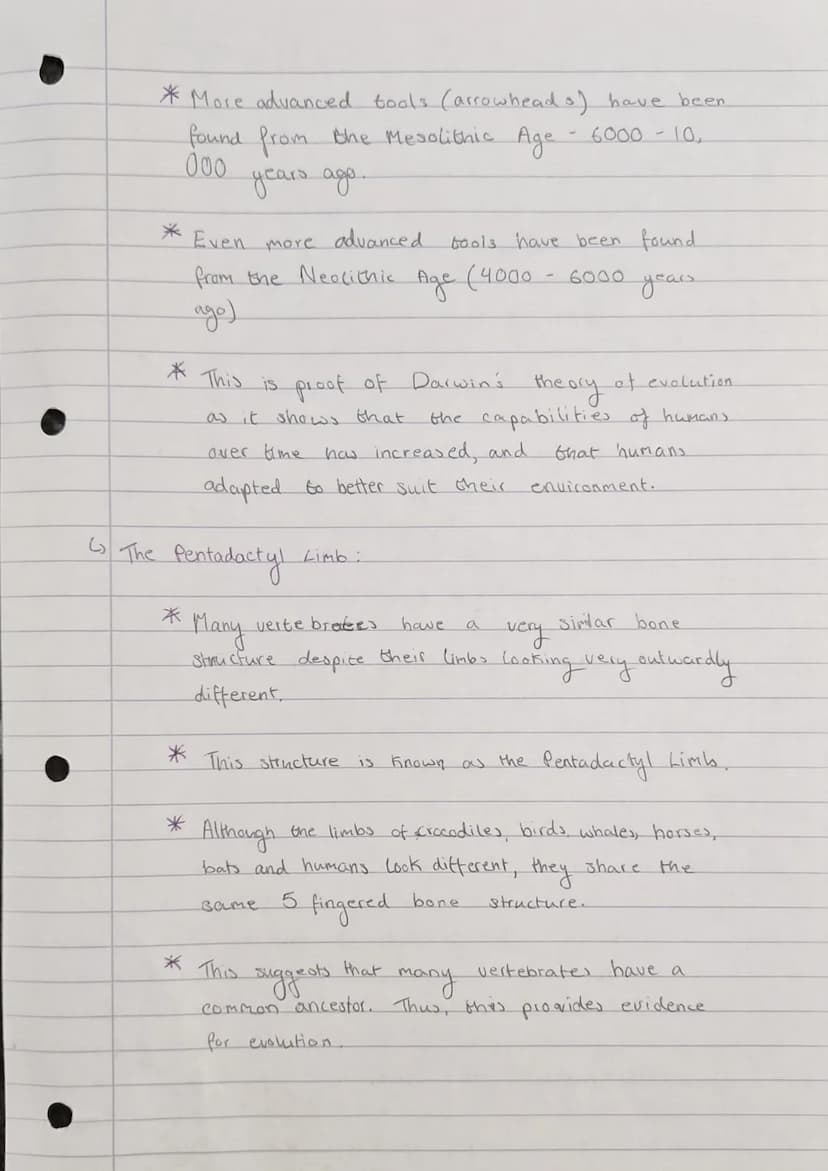 * More advanced tools (arrowheads) have been
found from the Mesolithic Age - 6000 - 10,
000 years ago.
* Even more advanced tools have been found
from the Neolithic Age (4000 - 6000 years
ago)
* This is proof of Darwin's theory of evolution
as it shows that the capabilities of humans
over time has increased, and that humans
adapted to better suit their environment.
↳ The Pentadactyl Limb:
* Many vertebrates have a very similar bone
structure despite their limbs looking very outwardly
different.
* This structure is known as the Pentadactyl Limb.
* Although the limbs of crocodiles, birds, whales, horses,
bats and humans look different, they share the
same 5 fingered bone structure.
* This suggests that many vertebrates have a
common ancestor. Thus, this provides evidence
for evolution.